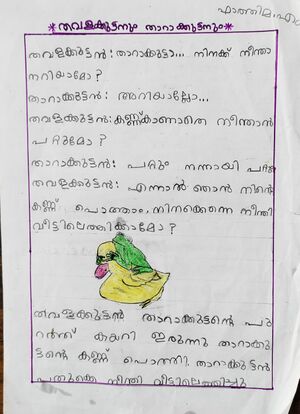 ഫാത്തിമ.എം
*തവളക്കുട്ടനും താറാക്കുട്ടനും*
തവളക്കുട്ടൻ: താറാക്കുട്ടാ... നിനക്ക് നീന്താ
നറിയാമോ?
താറാക്കുട്ടൻ: അറിയാല്ലോ...
തവളക്കുട്ടൻ: കണ്ണ്കാണാതെ നീന്താൻ
പറ്റുമോ?
താറാക്കുട്ടൻ: പറ്റും നന്നായി പറ്റും
തവളക്കുട്ടൻ: എന്നാൽ ഞാൻ നിന്റെ
കണ്ണ് പൊത്താം, നിനക്കെന്നെ നീന്തി
വീട്ടിലെത്തിക്കാമോ?
തവളക്കുട്ടൻ താറാക്കുട്ടന്റെ പു
റത്ത് കയറി ഇരുന്നു താറാക്കു
ട്ടന്റെ കണ്ണ് പൊത്തി. താറാക്കുട്ടൻ
പതുക്കെ നീന്തി വീട്ടിലെത്തിച്ചു